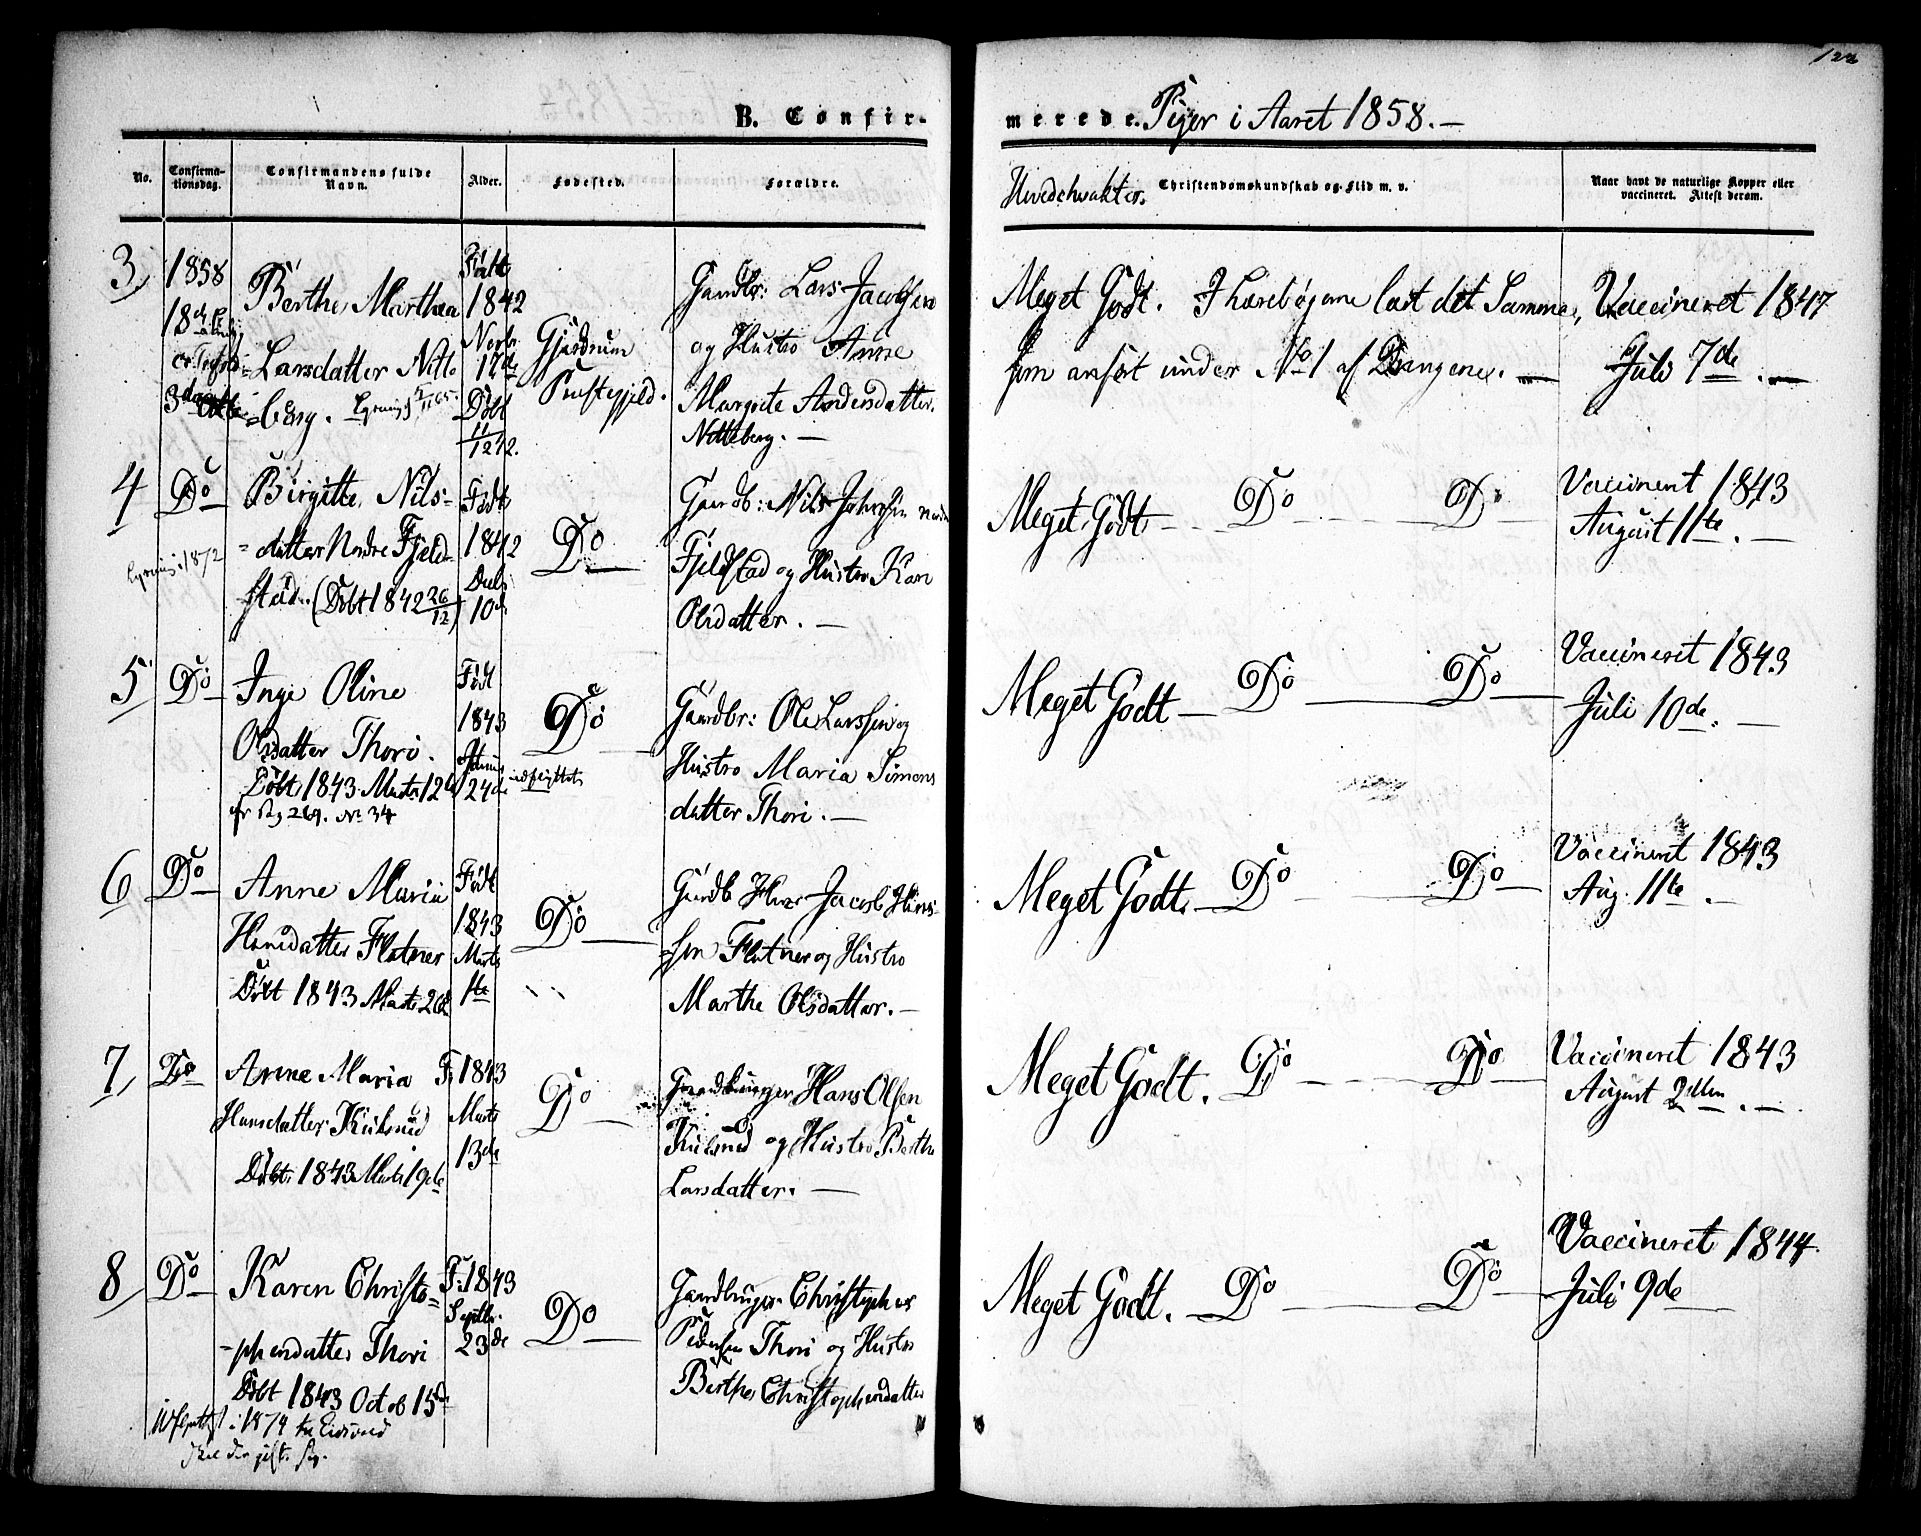 122
B. Confir-
merede. Piger i Aaret 1858.—
No.
Confirma-
tionsdag.
Confirmandens fulde
Navn.
Alder.
Fødested.
Forældre.
Christendomskundskab og Flid m. v.
Naar havt de naturlige Kopper eller
vaccineret. Attest derom.
3,
1858
Berthe Marthea
Larsdatter Nitte-
=berg.
Født
1842
Novbr
17de
Døbt
11/12 42.
Gjerdrum
Præstegjeld.
Gaardbr: Lars Jacobsen
og Hustro Anne
Margrete Andersdatter
Nitteberg. —
Meget Godt. I Lærebøgerne læst det Samme,
som anført under No 1 af Drengene. —
Vaccineret 1847
Juli 7de. —
4
Do
Birgitte Nils-
=datter Nordre Fjeld-
stad. (Døbt 1842 26/12)
i 1872
Født
1842
Decbr
10de
Do
Gaardb: Nils Johnsen
Fjeldstad og Hustro Kari
Olsdatter. —
Meget Godt — Do — Do —
Vaccineret 1843
August 11te. —
5
Do
Inge Oline
Olsdatter Thori.
Døbt 1843 Marts 12te
cfr Pag 269. No 34
Født
1843
24de
Do
indflyttet
Gaardbr: Ole Larssen og
Hustro Maria Simens
datter Thori. —
Meget Godt — Do — Do —
Vaccineret 1843
Juli 10de. —
6
Do
Anne Maria
Hansdatter Flatner
Døbt 1843 Marts 26de
Født
1843
Marts
1te
Do
Gaardb Hans Jacob Hans-
=sen Flatner og Hustro
Marthe Olsdatter. —
Meget Godt. — Do — Do —
Vaccineret 1843
Aug. 11te. —
7,
Do
Anne Maria
Hansdatter Kulsrud
Døbt 1843 Marts 19de
F. 1843
Marts
13de
Do
Gaardbruger Hans Olsen
Kulsrud og Hustro Berthe
Larsdatter. —
Meget Godt. Do — Do —
Vaccineret 1843
August 2den. —
8
Do
Karen Christo-
-phersdatter Thori
Døbt 1843 Octob 15de
Udflyttet i 1874 til Eidsvold
skal der gift. sig.
F. 1843
Septbr.
23de
Do
Gaardbruger Christopher
Pedersen Thori og Hustro
Berthe Christophersdatter
Meget Godt. — Do — Do —
Vaccineret 1844.
Juli 9de